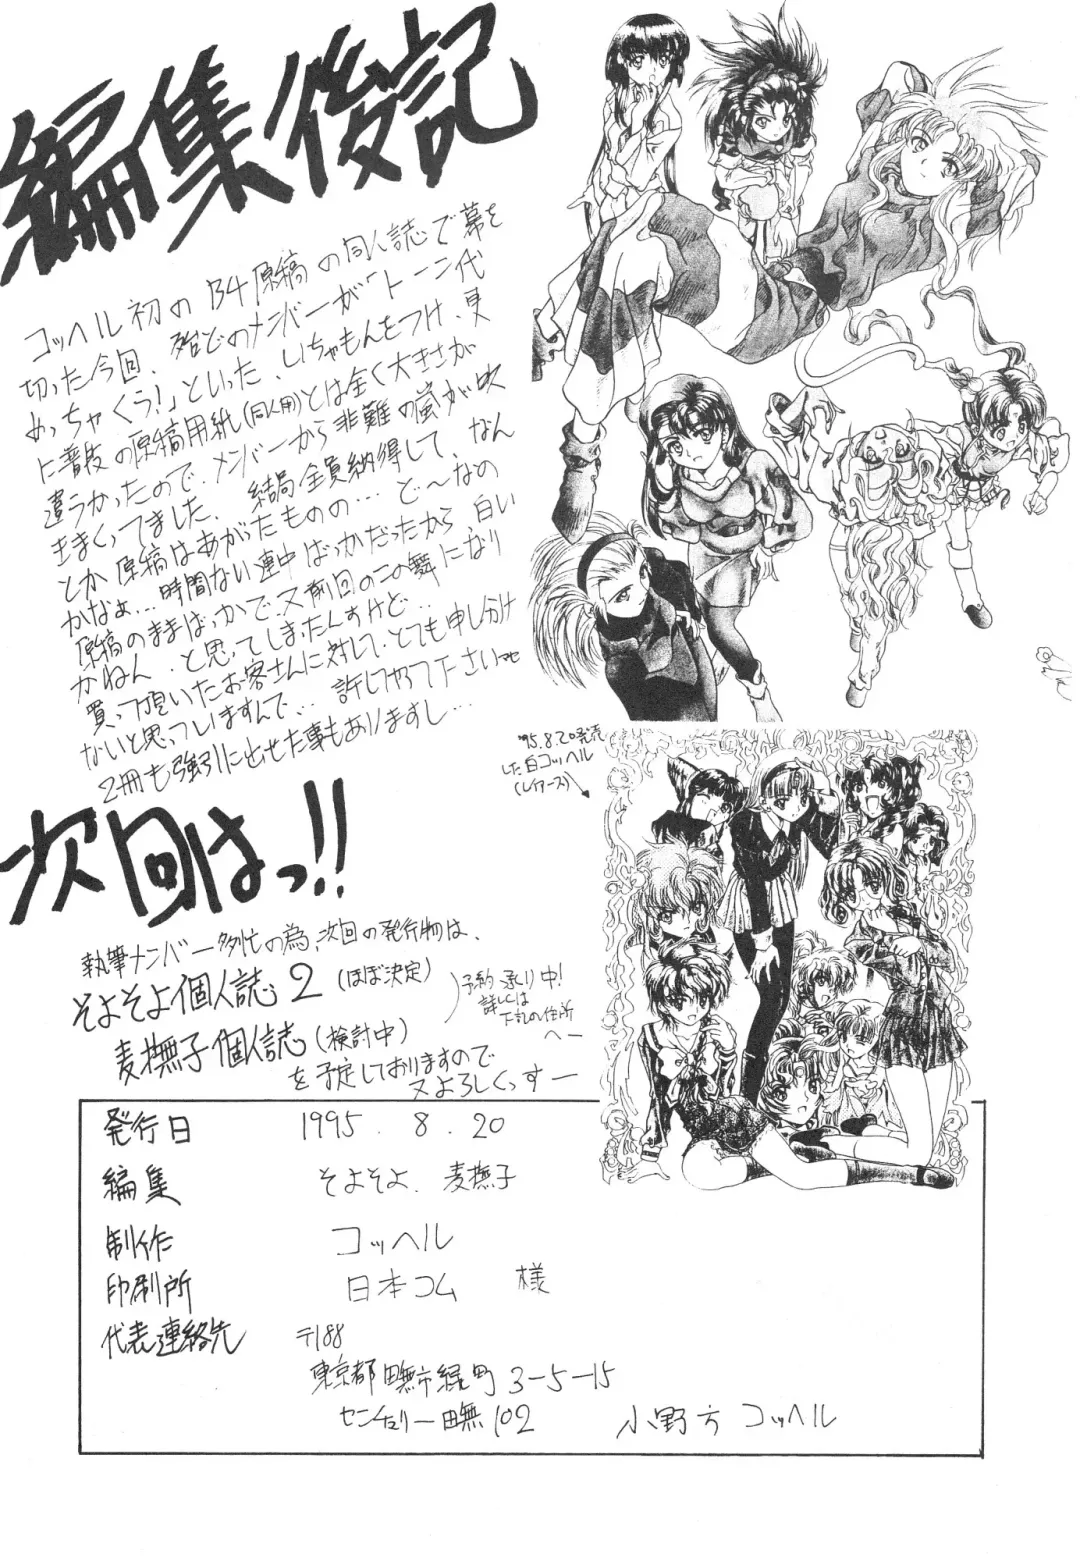 編集後記
コッヘル初のB4原稿の同人誌で幕を
切った今回、殆どのメンバーが「トーン代
めっちゃくう!」といった、いちゃもんをつけ、更
に普段の原稿用紙(同人用)とは全く大きさが
違うかったので、メンバーから非難の嵐が吹
きまくってました、結局全員納得して、なん
とか原稿はあがったものの…ど〜なの
かなぁ…時間ない連中ばっかだったから、白い
原稿のままばっかで、又前回のこの舞になり
かねん…と思ってしまったんすけど…
買って頂いたお客さんに対して、とても申し分け
ないと思っていますんで…許しやって下さいませ
2冊も強引に出せた事もありますし…
'95.8.20発売
した白コッヘル
(レイアース)
次回はっ!!
執筆メンバー多忙の為、次回の発行物は、
そよそよ個人誌2(ほぼ決定)
麦撫子個人誌(検討中)
予約承り中!
詳しくは
下記の住所
へー
を予定しておりますので
又よろしくっすー
発行日 1995.8.20
編集 そよそよ.麦撫子
制作 コッヘル
印刷所 日本コム 様
代表連絡先 〒188
東京都田無市緑町3-5-15
センチュリー田無102 小野方コッヘル